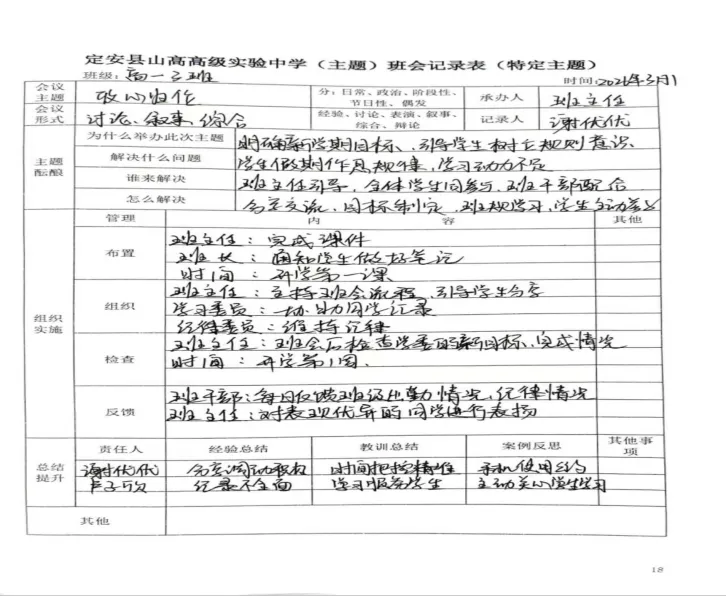 定安县山高高级实验中学（主题）班会记录表（特定主题）
班级：高一3班 时间:2026年3月1
会议主题 收心归作 分：日常、政治、阶段性、节日性、偶发 承办人 班主任
会议形式 讨论、叙事、综合 经验、讨论、表演、叙事、综合、辩论 记录人 谢优优
主题酝酿 为什么举办此次主题 明确新学期目标、引导学生树立规则意识
解决什么问题 学生假期作息规律，学习动力不足
谁来解决 班主任引导，全体学生同参与，班干部配合
怎么解决 分享交流，目标制定，班规学习，学生主动参与
组织实施 管理 内 容 其他
布置 班主任：完成课件
班长：通知学生做好笔记
时间：开学第一课
组织 班主任：主持班会流程，引导学生分享
学习委员：协助同学记录
纪律委员：维持纪律
检查 班主任：班会后检查学委的新目标、完成情况
时间：开学第1周.
反馈 班干部：每日反馈班级出勤情况，纪律情况
班主任：对表现优异的同学进行表扬
总结提升 责任人 经验总结 教训总结 案例反思 其他事项
谢优优 分享调动 时间把控精准 手机使用
纪录不全面 学习服务学生 主动关心学生学习
其他
18